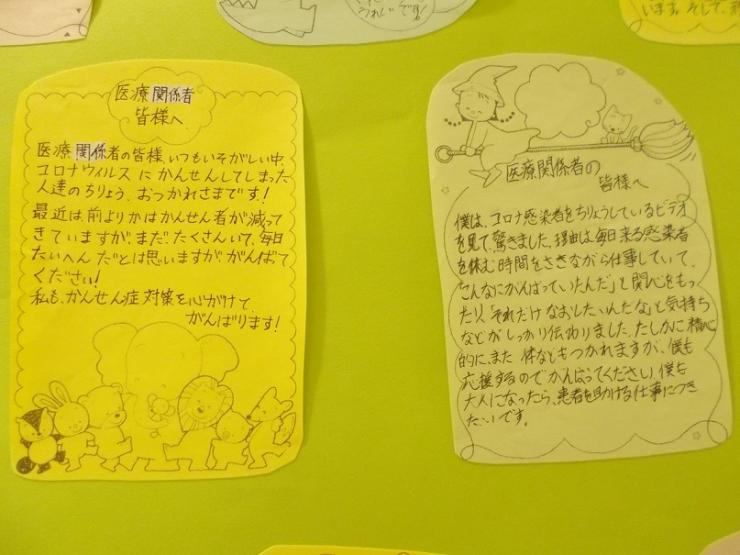 います。そして、
医療関係者
皆様へ
医療関係者の皆様、いつもいそがしい中、
コロナウィルスにかんせんしてしまった
人達のちりょう、おつかれさまです!
最近は、前よりかはかんせん者が減って
きていますが、まだ、たくさんいて、毎日
たいへんだとは思いますが、がんばて
ください!
私も、かんせん症対策を心がけて、
がんばります!
医療関係者の
皆様へ
僕は、コロナ感染者をちりょうしているビデオ
を見て、驚きました。理由は、毎日来る感染者
を休む時間をさきながら仕事していて、
「こんなにがんばっていたんだ」と関心をもっ
たり、「それだけなおしたいんだな」と気持ち
などがしっかり伝わりました。たしかに精神
的に、また体などもつかれますが、僕も
応援するのでがんばってください。僕も
大人になったら、患者を助ける仕事につき
たいです。